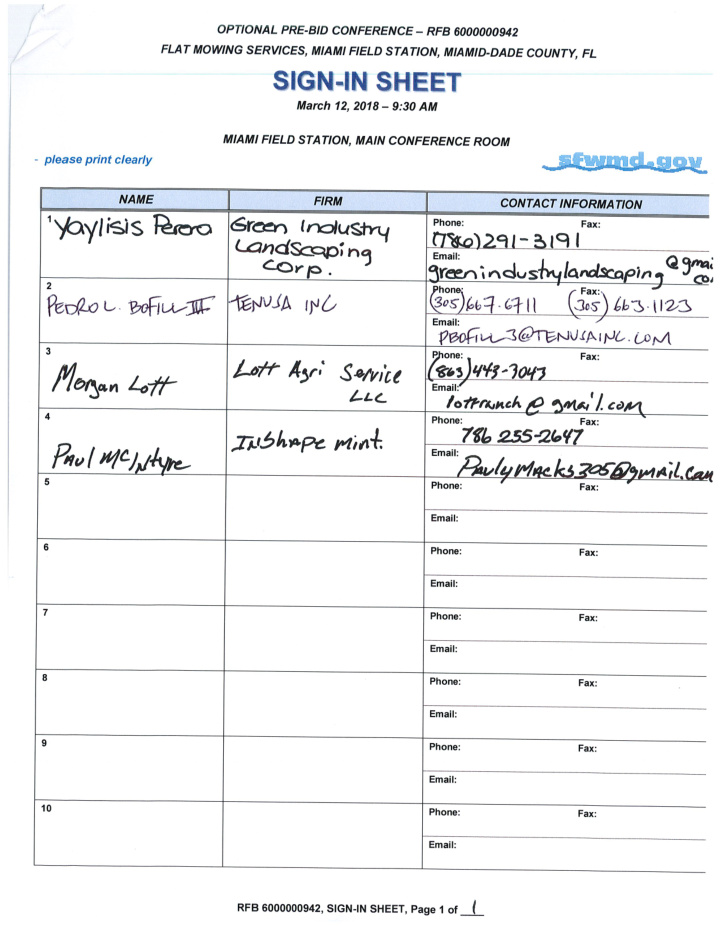 OPTIONAL PRE-BID CONFERENCE – RFB 6000000942
FLAT MOWING SERVICES, MIAMI FIELD STATION, MIAMID-DADE COUNTY, FL
SIGN-IN SHEET
March 12, 2018 – 9:30 AM
MIAMI FIELD STATION, MAIN CONFERENCE ROOM
- please print clearly
sfwmd.gov
NAME FIRM CONTACT INFORMATION
1 Yaylisis Perera
Green Industry
Landscaping
Corp.
Phone: Fax:
(786)291-3191
Email:
greenindustrylandscaping @gmai
co
2
PEDRO L. BOFILL III
TENUSA INC
Phone: Fax:
(305)667.6711 (305) 663.1123
Email:
PBOFILL3@TENUSAINC.COM
3
Morgan Lott
Lott Agri Service
LLC
Phone: Fax:
(863)443-3043
Email:
lottranch@gmail.com
4
Paul McIntyre
INShape mint.
Phone: Fax:
786 255-2647
Email:
PaulyMacks305@gmail.com
5
Phone: Fax:
Email:
6
Phone: Fax:
Email:
7
Phone: Fax:
Email:
8
Phone: Fax:
Email:
9
Phone: Fax:
Email:
10
Phone: Fax:
Email:
RFB 6000000942, SIGN-IN SHEET, Page 1 of 1